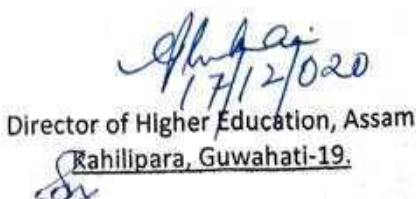 17/12/020
Director of Higher Education, Assam
Kahilipara, Guwahati-19.